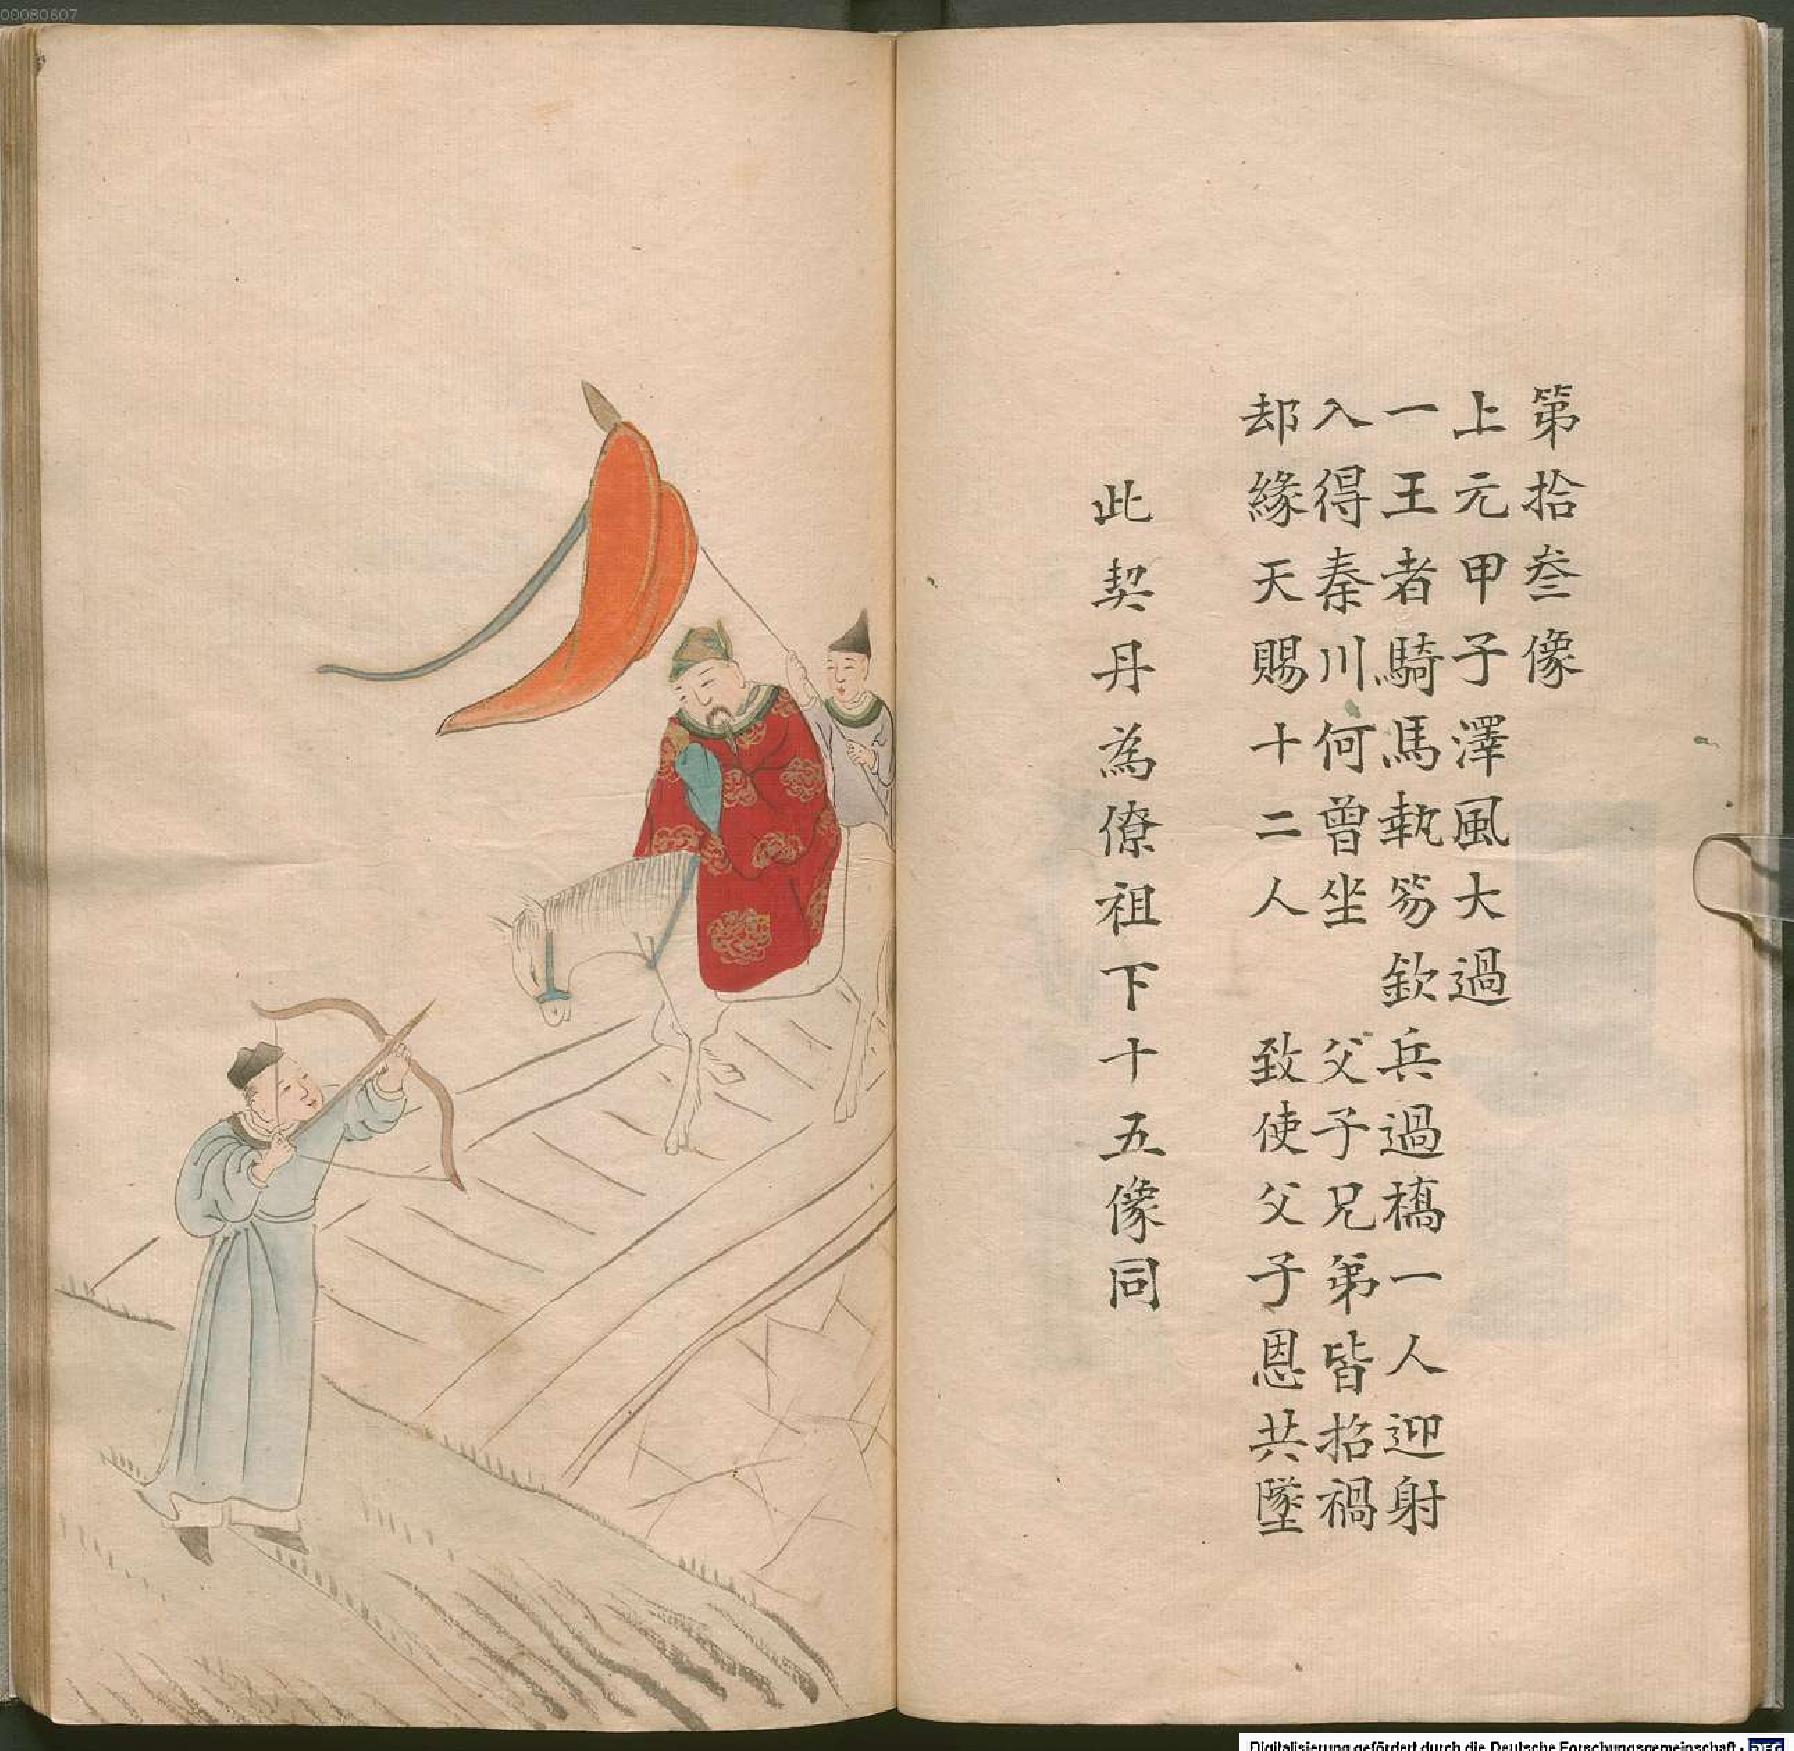 00080607
第拾叁像
上元甲子澤風大過
一王者騎馬執笏欽兵過橋一人迎射
入得秦川何曾坐　父子兄弟皆招禍
却緣天賜十二人　致使父子恩共墜
此契丹為僚祖下十五像同
Digitalisierung gefördert durch die Deutsche Forschungsgemeinschaft · DFG